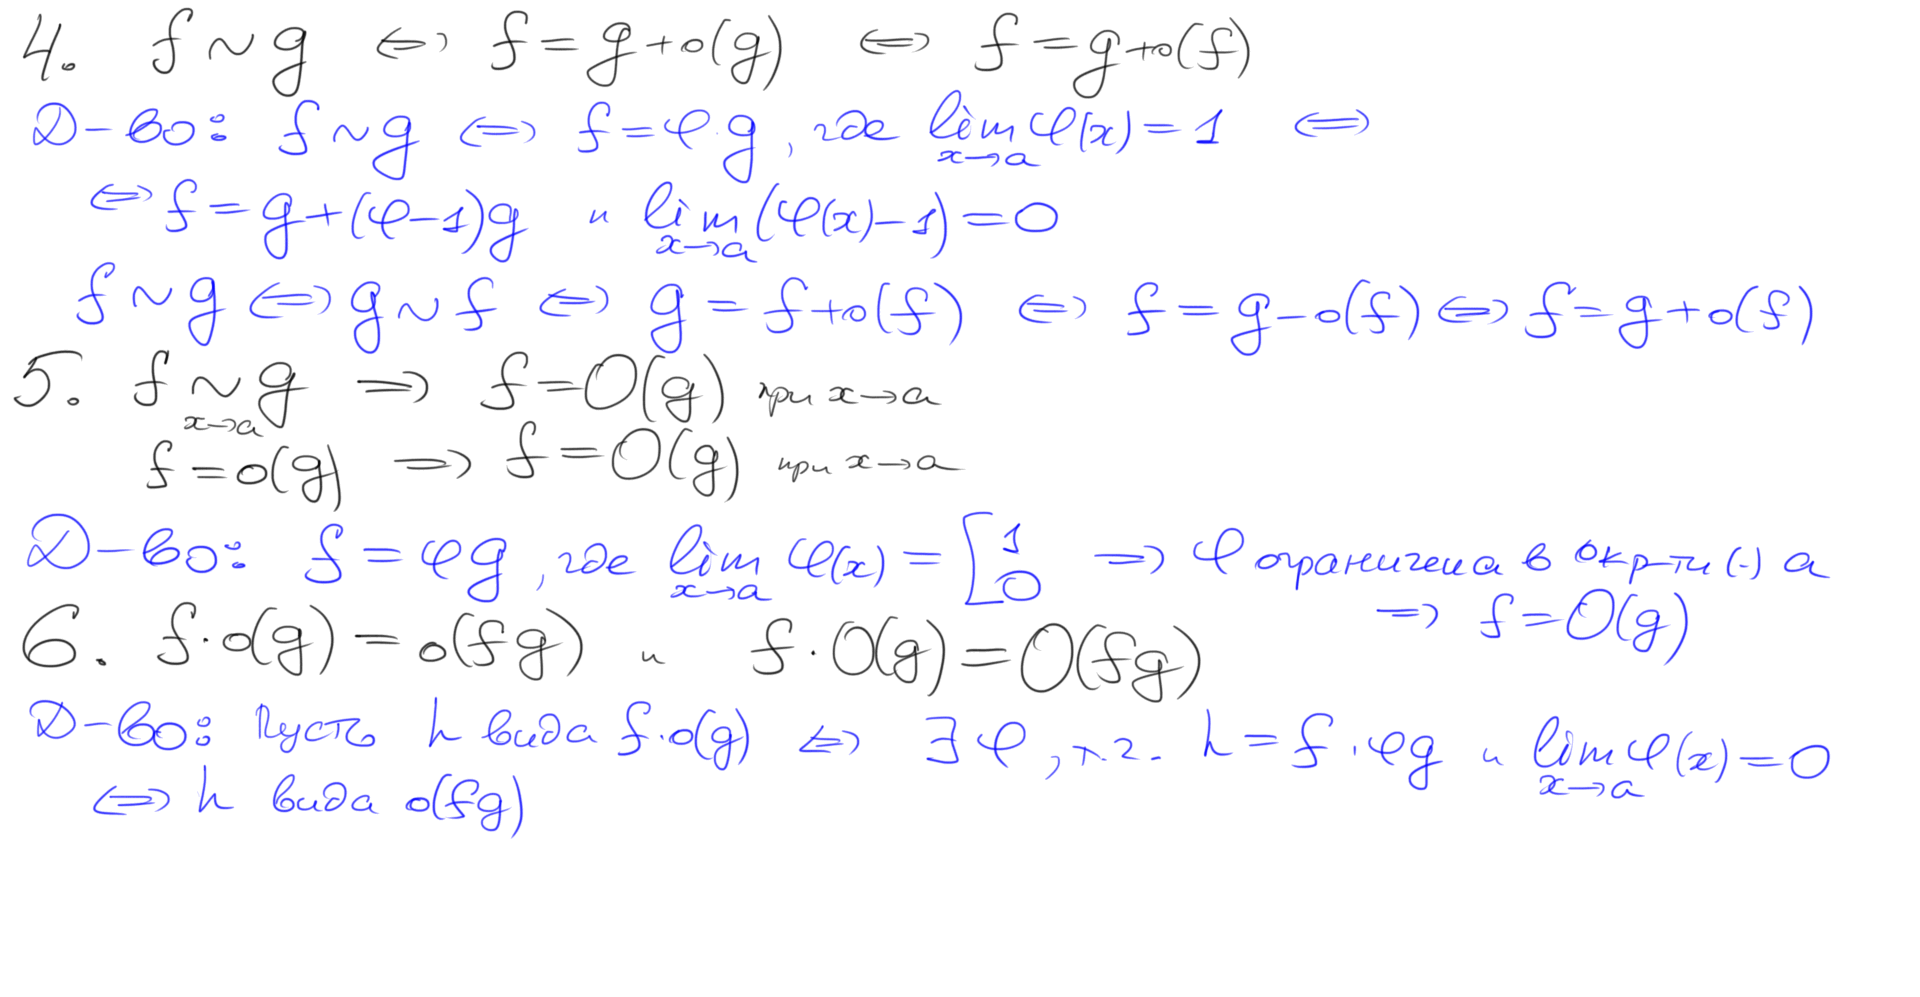 4. f ~ g ⇔ f = g + o(g) ⇔ f = g + o(f)
Д-во: f ~ g ⇔ f = φ·g, где lim_{x→a} φ(x) = 1 ⇔
⇔ f = g + (φ-1)g и lim_{x→a} (φ(x)-1) = 0
f ~ g ⇔ g ~ f ⇔ g = f + o(f) ⇔ f = g - o(f) ⇔ f = g + o(f)
5. f ~_{x→a} g ⇒ f = O(g) при x→a
f = o(g) ⇒ f = O(g) при x→a
Д-во: f = φg, где lim_{x→a} φ(x) = [1 0 ⇒ φ ограничена в окр-ти (·) a
⇒ f = O(g)
6. f·o(g) = o(fg) и f·O(g) = O(fg)
Д-во: Пусть h вида f·o(g) ⇔ ∃ φ, т.ч. h = f·φg и lim_{x→a} φ(x) = 0
⇔ h вида o(fg)